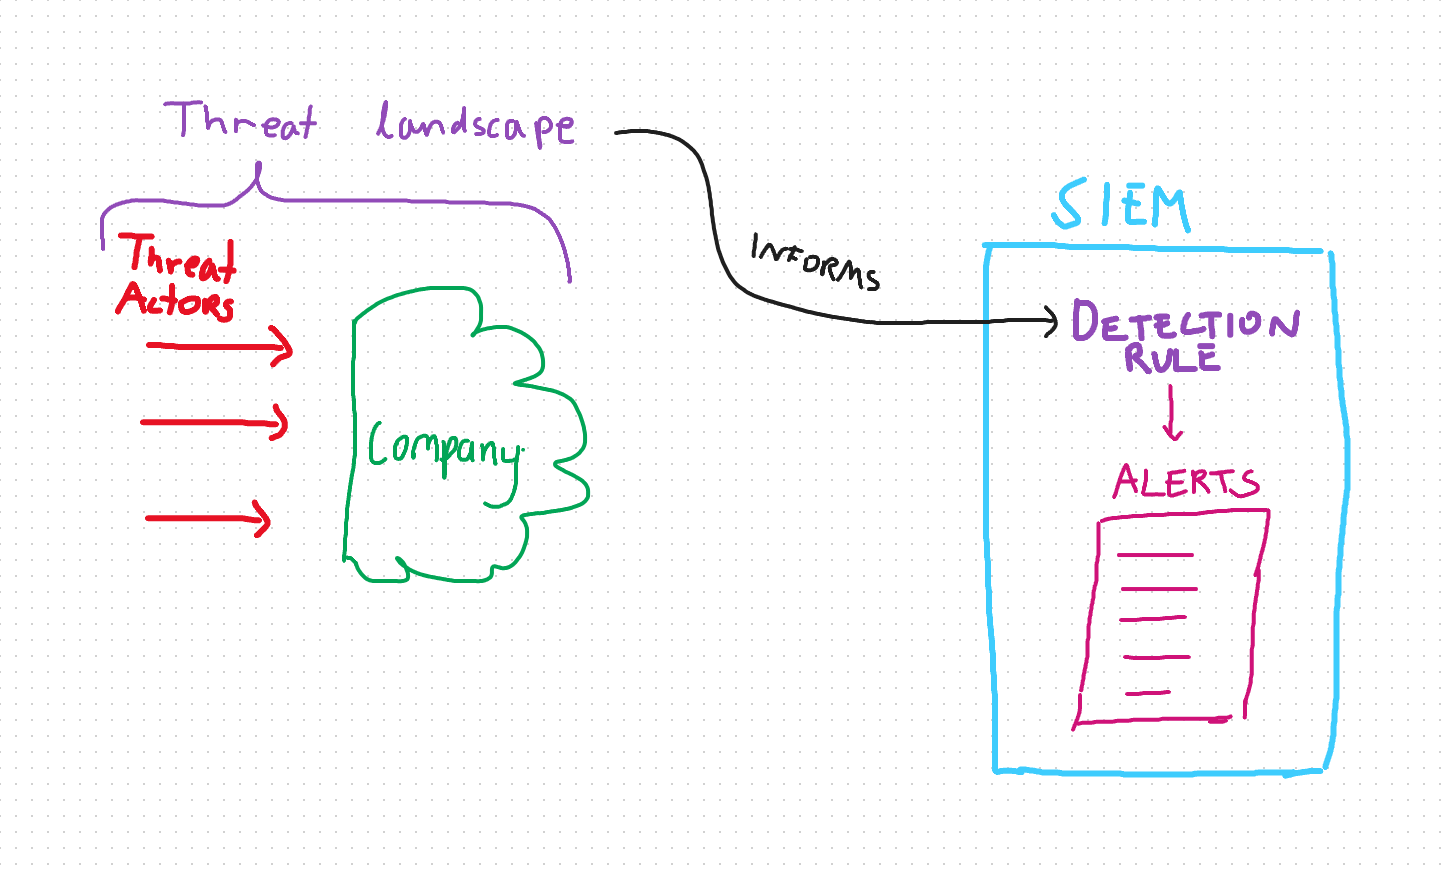 Threat landscape
Threat
Actors
Company
Informs
SIEM
DETECTION
RULE
ALERTS